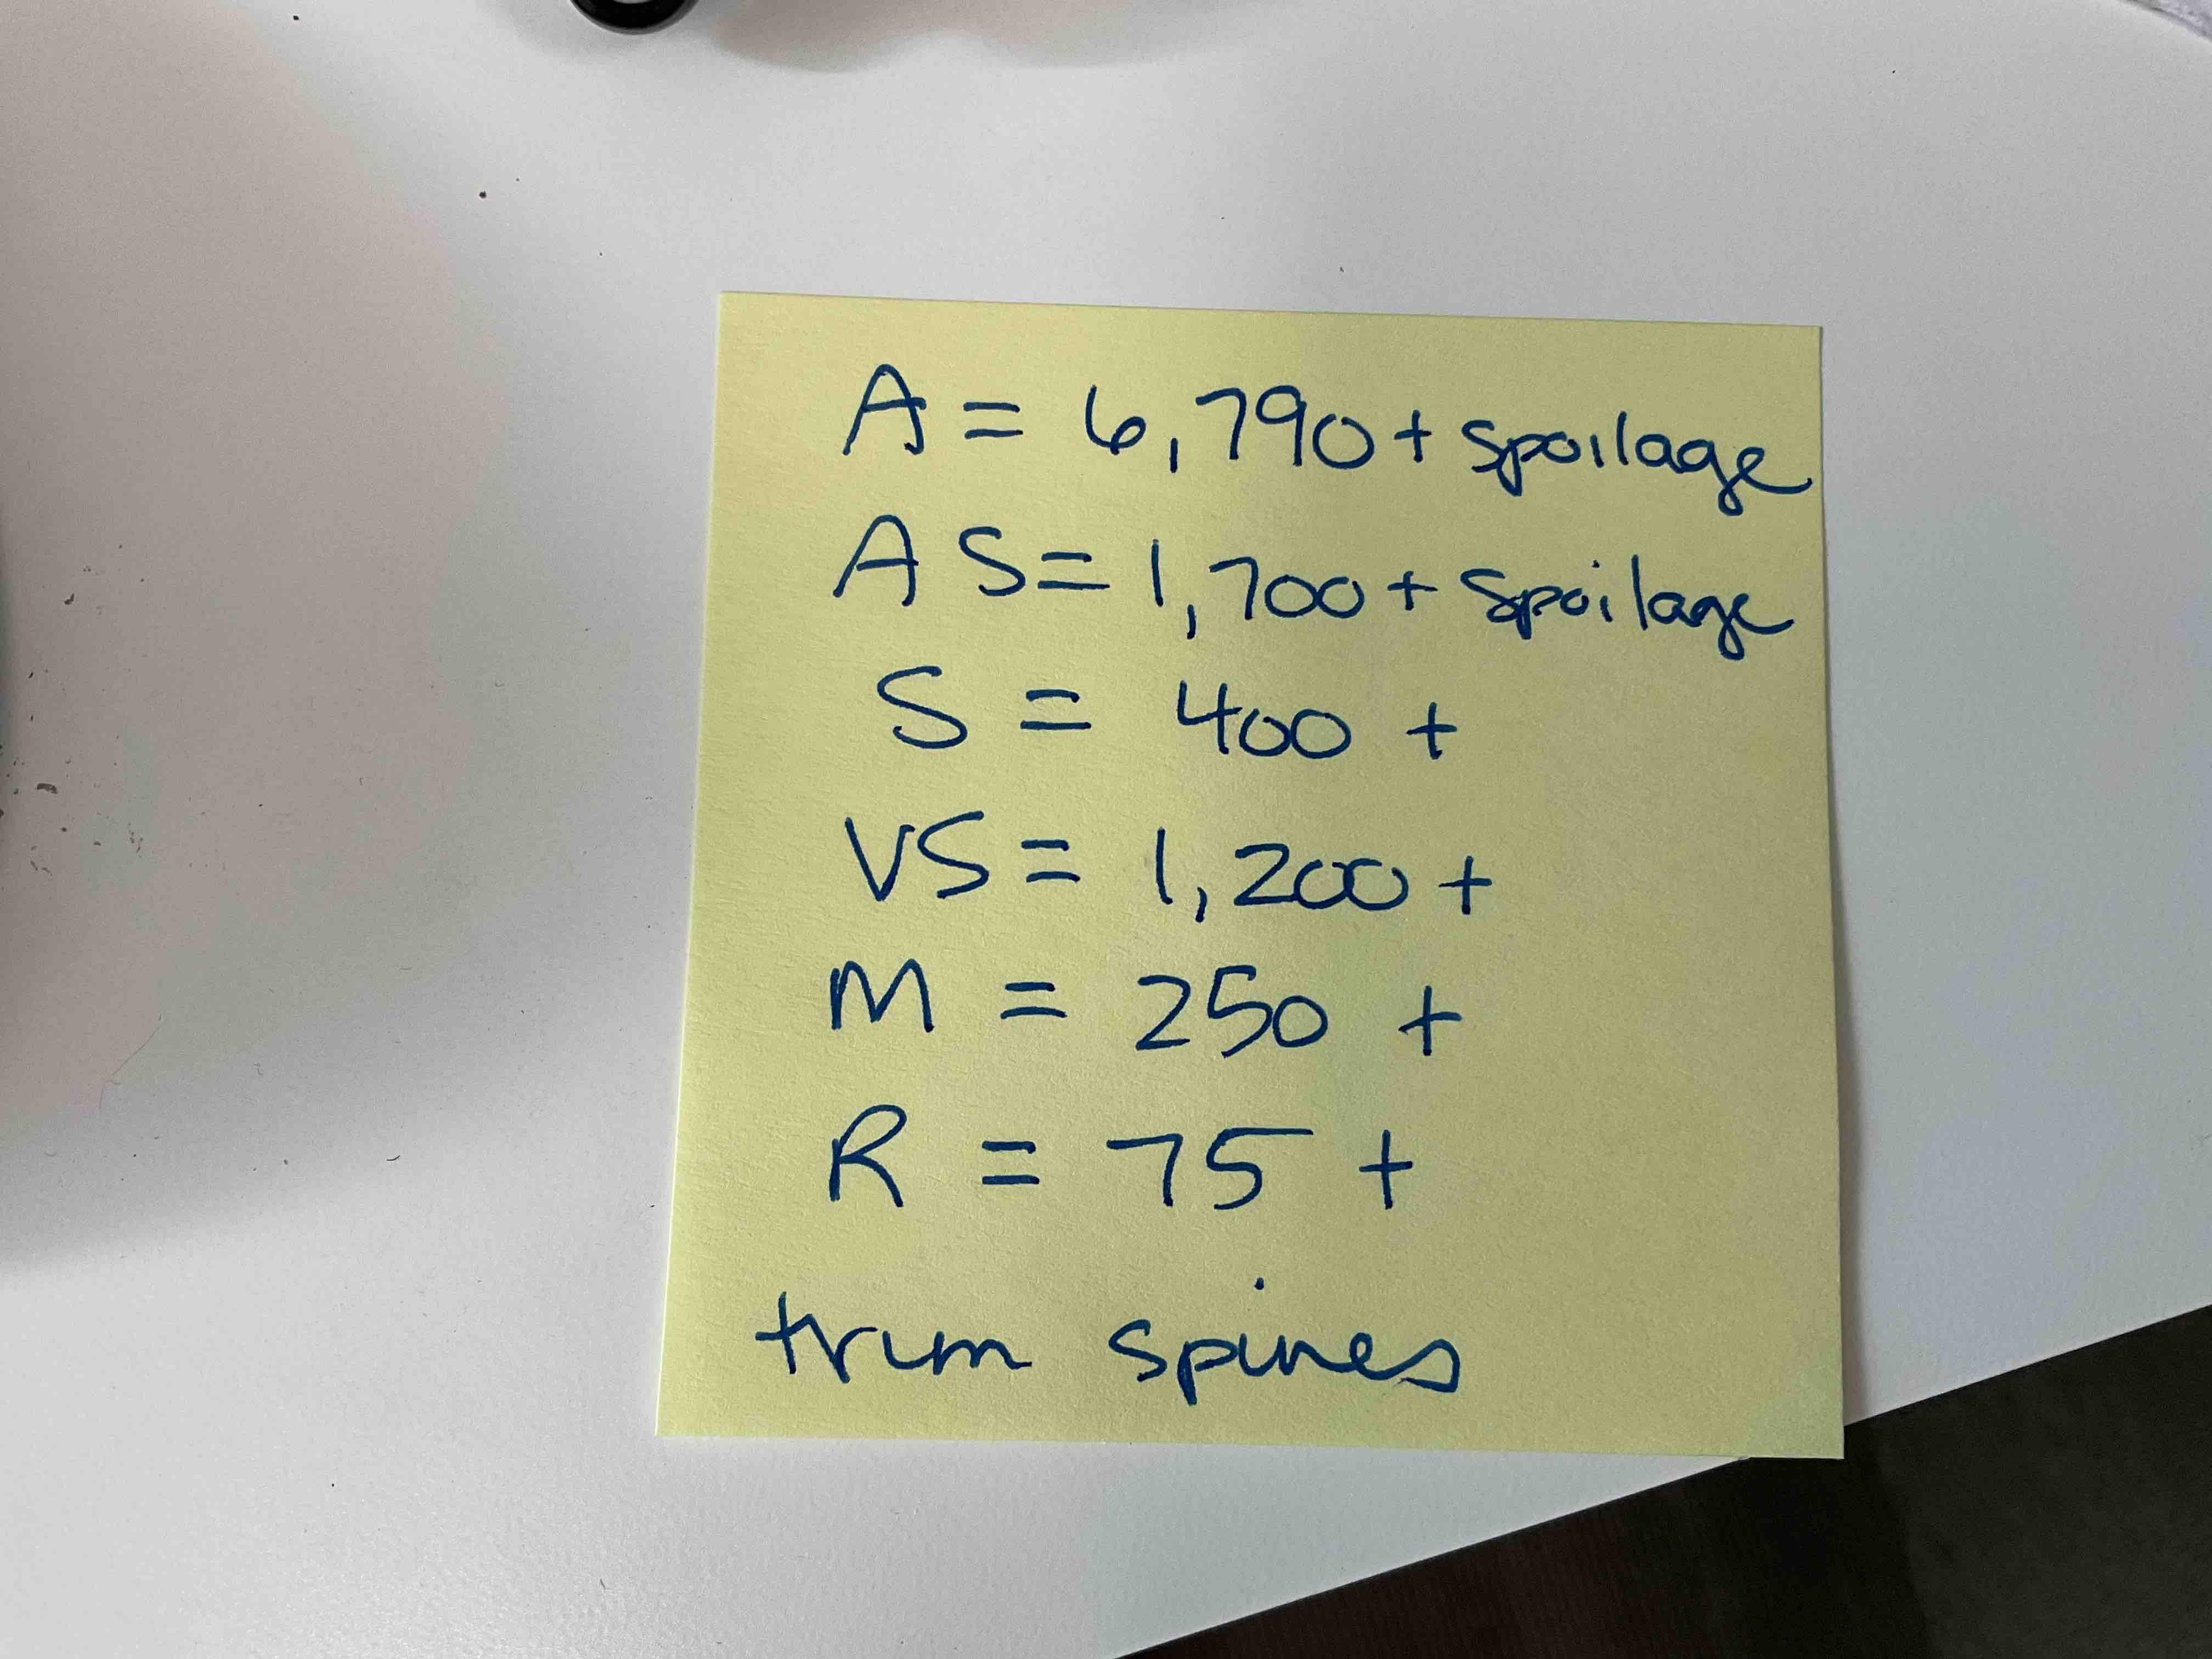 A = 6,790 + spoilage
A S = 1,700 + spoilage
S = 400 +
VS = 1,200 +
M = 250 +
R = 75 +
trim spines